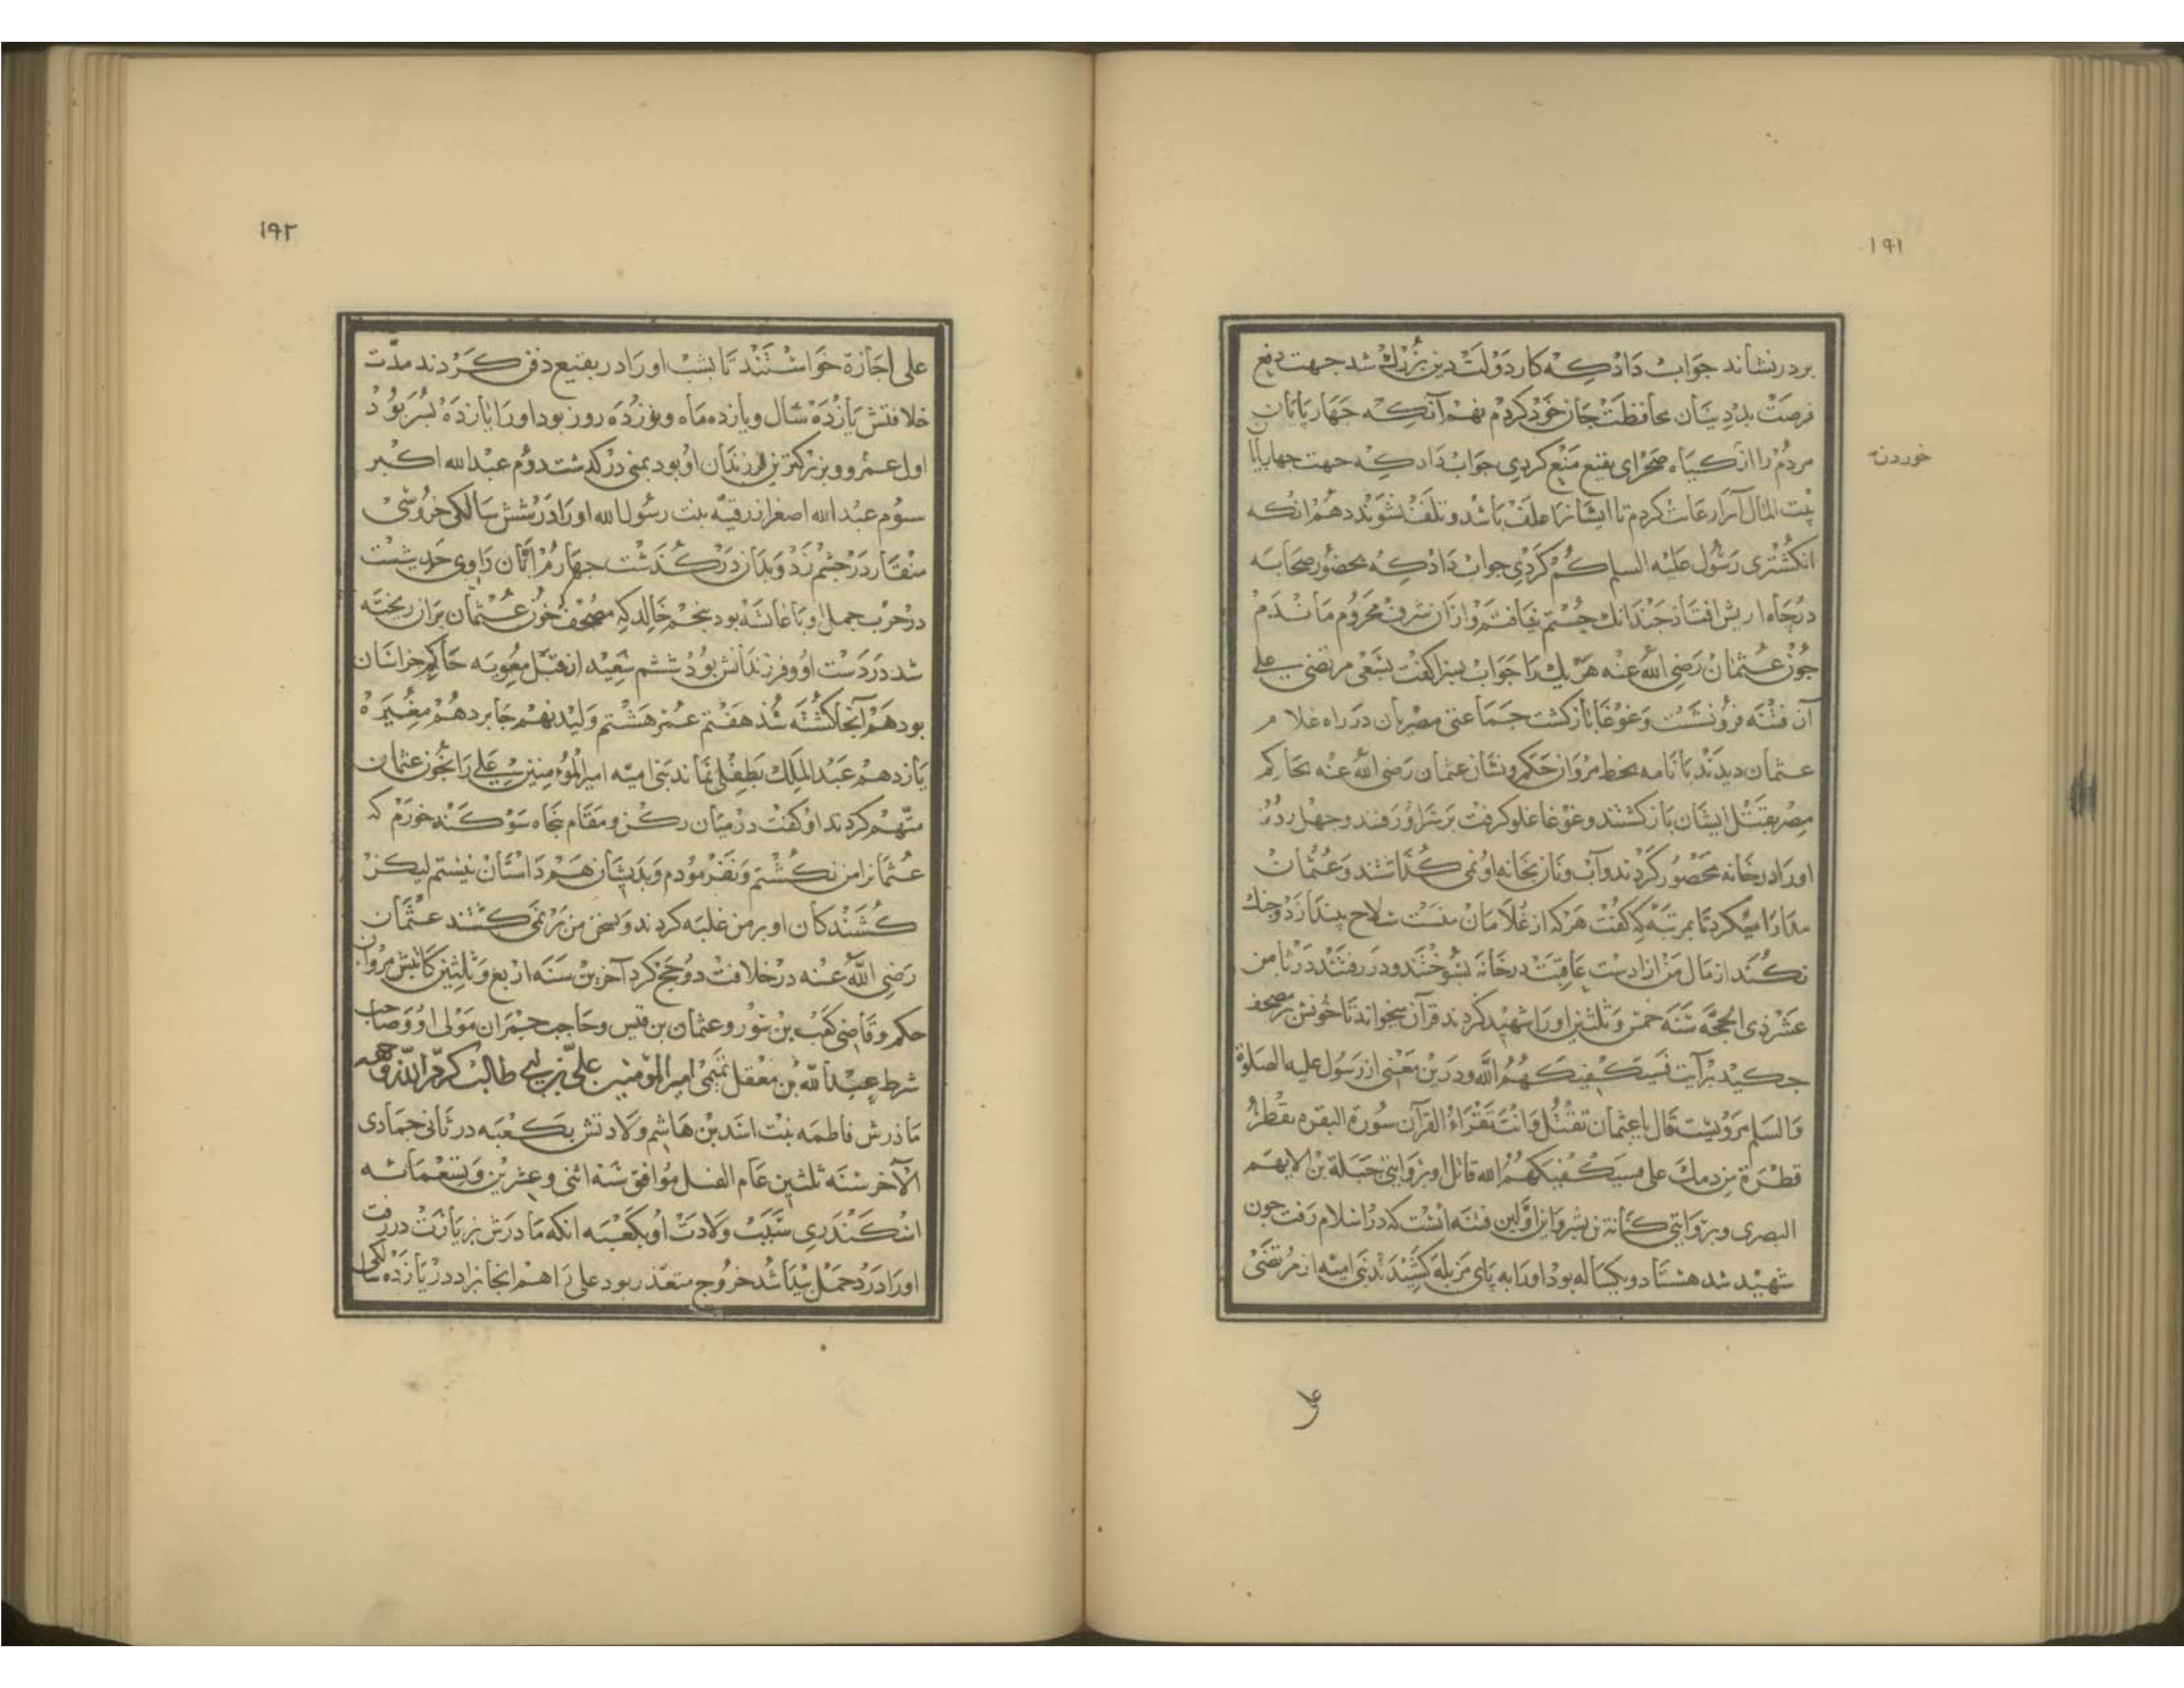 ١٩١
بر در نشاند جواب داد که کار دولت دین بزرك شد جهت دفع
فرصت بددینان محافظت جان خود کردم نهم آنکه چهارپایان
مردم را از کیاه صحرای بقیع منع کردی جواب داد که جهت چهارپایان
خوردن
بیت المال آنرا رعایت کردم تا ایشانرا علف باشد و تلف نشوند دهم انکه
انکشتری رسول علیه السلم کم کردی جواب داد که بحضور صحابه
در چاه اریس افتاد چندانك جستم نیافتم و از آن شرف محروم ماندم
چون عثمان رضی الله عنه هر یك را جواب بسزا کفت بسعی مرتضی علی
آن فتنه فرو نشست و غوغا باز کشت جماعتی مصریان در راه غلام
عثمان دیدند با نامه بخط مروان حکم و نشان عثمان رضی الله عنه بحاکم
مصر بقتل ایشان باز کشتند و غوغا غلو کرفت بر سر او رفتند و چهل روز
اورا در خانه محصور کردند و آب و نان بخانه او نمی کذاشتند و عثمان
مدارا میکرد تا بمرتبه که کفت هر که از غلامان منست سلاح بیندازد و جنك
نکند از مال من ازادست عاقبت در خانه بسوختند و در رفتند در ثامن
عشر ذی الحجه سنه خمس و ثلثین اورا شهید کردند قرآن میخواند تا خونش بر مصحف
چکید بر آیت فسیکفیکهم الله و درین معنی از رسول علیه الصلوة
والسلم مرویست قال یا عثمان تقتل وانت تقراء القرآن سورة البقره بقطر
قطرة من دمك علی فسیکفیکهم الله قاتل او بروایتی جبلة بن الایهم
البصری و بروایتی کنانة بن بشر و این اولین فتنه است که در اسلام رفت چون
شهید شد هشتاد و یکساله بود اورا به پای مزبله کشیدند بنی امیه از مرتضی
١٩٢
علی اجازة خواستند تا بشب اورا در بقیع دفن کردند مدت
خلافتش یازده سال و یازده ماه و نوزده روز بود اورا یازده پسر بود
اول عمرو و بزرکترین فرزندان او بود بمنی در کذشت دوم عبد الله اکبر
سوم عبد الله اصغر از رقیه بنت رسول الله اورا در شش سالکی خروسی
منقار در چشم زد و بدان در کذشت چهارم ابان راوی حدیثست
در حرب جمل او با عایشه بود پنجم خالد که مصحف خون عثمان بران ریخته
شد در دست او و فرزندانش بود ششم سعید از قبل معویه حاکم خراسان
بود هم آنجا کشته شد هفتم عمر هشتم ولید نهم جابر دهم مغیره
یازدهم عبد الملك بطفلی نماند بنی امیه امیر المؤمنین علی را بخون عثمان
متهم کردند او کفت در میان رکن و مقام پنجاه سوکند خورم که
عثمانرا من نکشتم و نفرمودم و بدیشان هم داستان نیستم لیکن
کشندکان او بر من غلبه کردند و بسخن من بر نمی کشتند عثمان
رضی الله عنه در خلافت دو حج کرد آخرین سنه اربع و ثلثین کاتبش مروان
حکم و قاضی کعب بن سور و عثمان بن قیس و حاجب حمران مولی او و صاحب
شرط عبید الله بن معقل تمیمی امیر المؤمنین علی بن ابی طالب کرم الله وجهه
مادرش فاطمه بنت اسد بن هاشم ولادتش بکعبه در ثانی جمادی
الآخر سنه ثلثین عام الفیل موافق سنه اثنی و عشرین و تسعمائه
اسکندری سبب ولادت او بکعبه انکه مادرش بزیارت در رفت
اورا درد حمل پیدا شد خروج متعذر بود علی را هم انجا بزاد در یازده سالکی